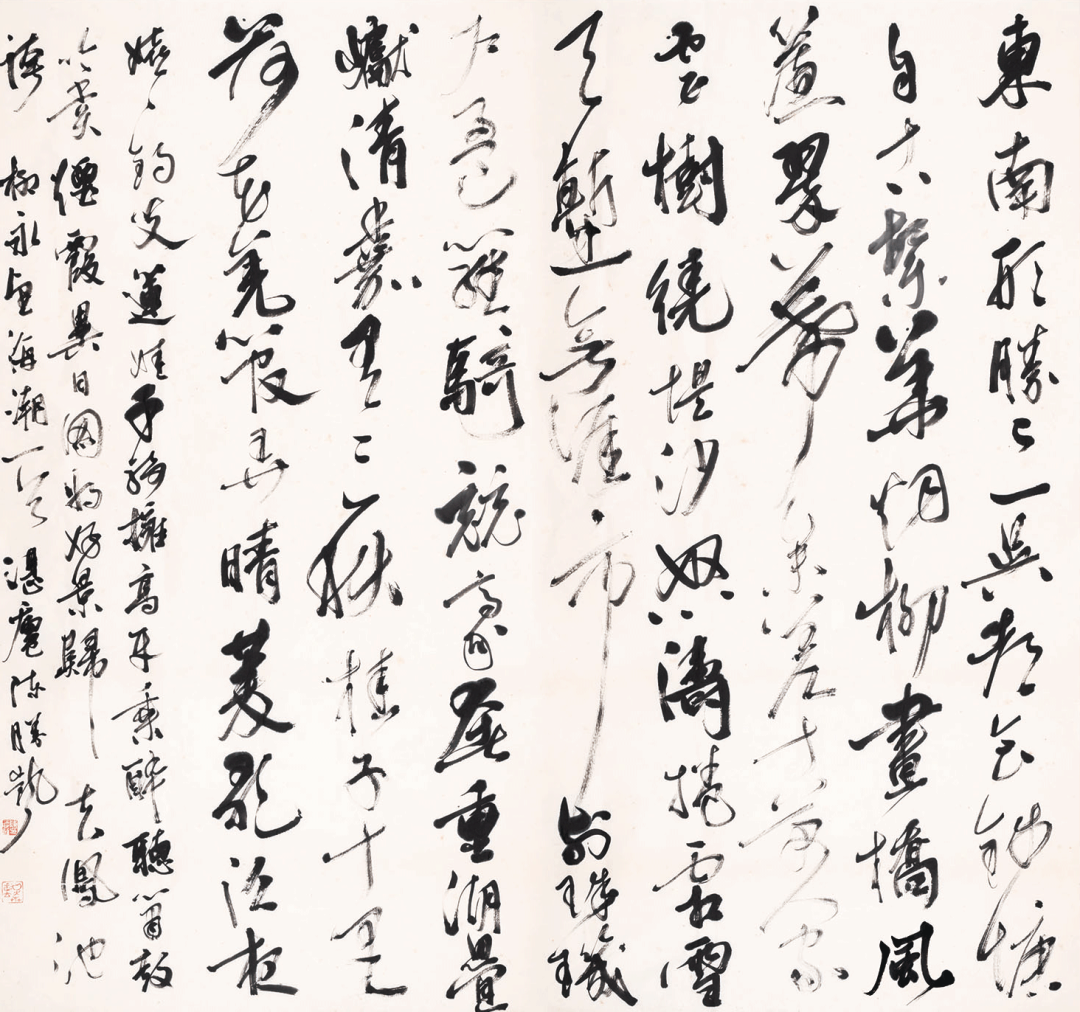 東南形勝三吳都会錢塘
自古繁華烟柳畫橋風
簾翠幕參差十萬人家
雲樹繞堤沙怒濤捲霜雪
天塹無涯市列珠璣
戶盈羅騎競豪奢重湖疊
巘清嘉有三秋桂子十里
荷花羌管弄晴菱歌泛夜
嬉〻釣叟蓮娃千騎擁高牙乘醉聽簫鼓
吟賞煙霞異日圖將好景歸去鳳池
誇 柳永望海潮一首 陳勝凱